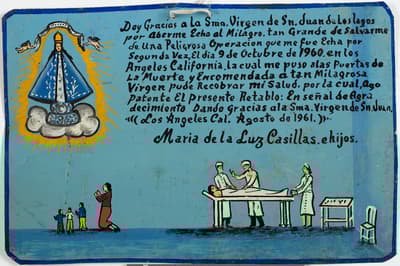 Doy Gracias a la Sma. Virgen de Sn. Juan de los lagos
por aberme Echo al Milagro, tan Grande de Salvarme
de Una Peligrosa Operacion que me fue Echa por
Segunda Vez, El dia 9 de Octubre de 1960, en los
Angeles California, la cual me puso alas Puertas de
La Muerte y Encomendada a tan Milagrosa
Virgen pude Recobrar mi Salud. por la cual, Ago
patente El presente Retablo: En señal de Agra
decimiento Dando Gracias a la Sma. Virgen de Sn, Juan,
(Los Angeles Cal. Agosto de 1961.)
Maria de la Luz Casillas. e hijos.